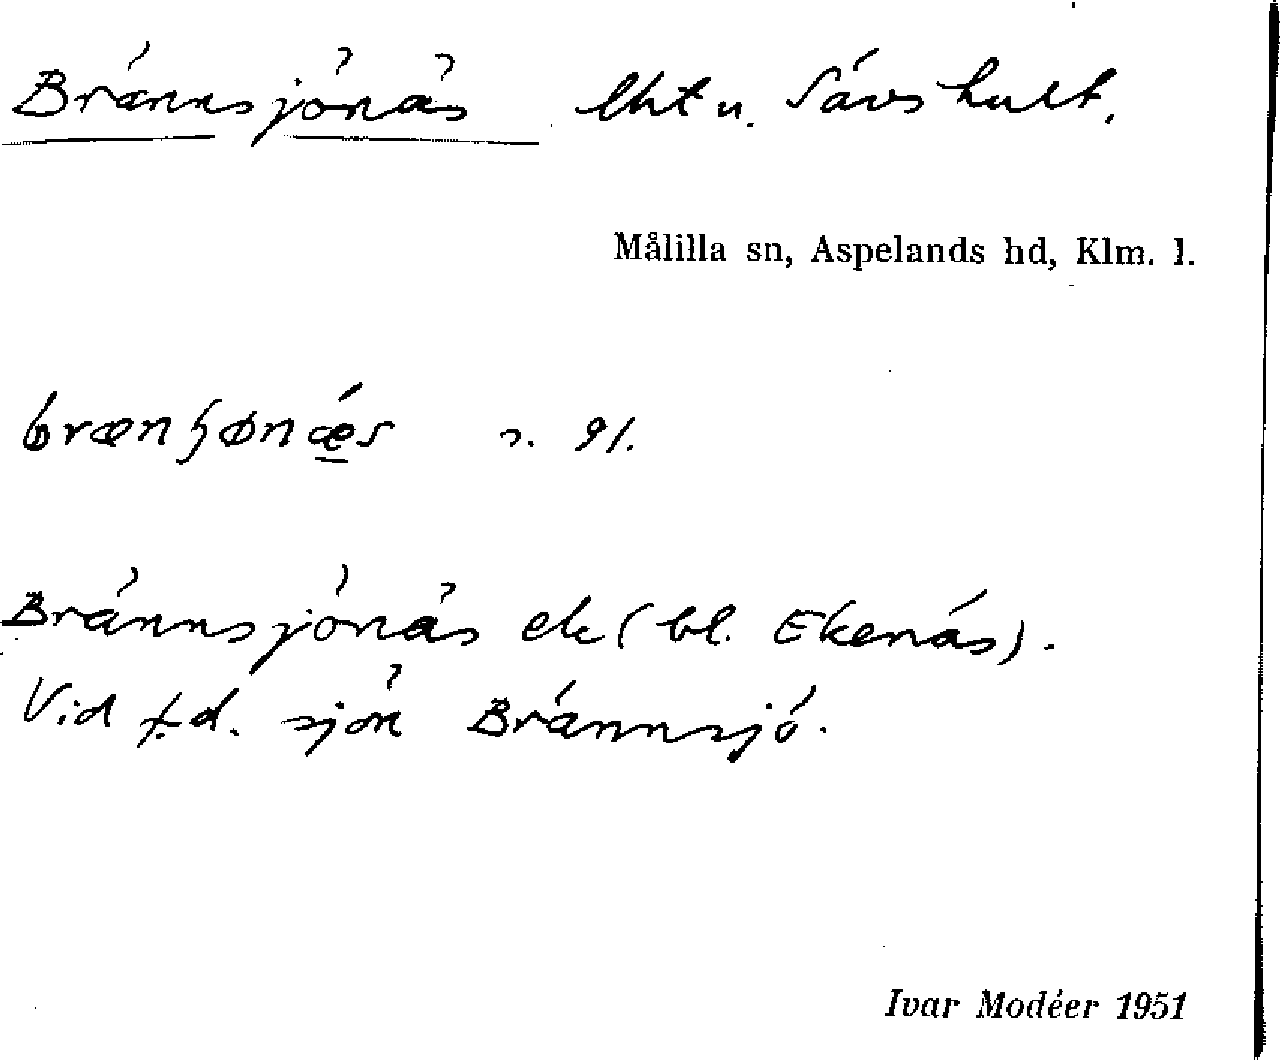 Brännsjönäs lht u. Sävshult.
Målilla sn, Aspelands hd, Klm. l.
brænʃønæs s. 91.
Brännsjönäs ek (bl. Ekenäs).
Vid f.d. sjön Brännsjö.
Ivar Modéer 1951